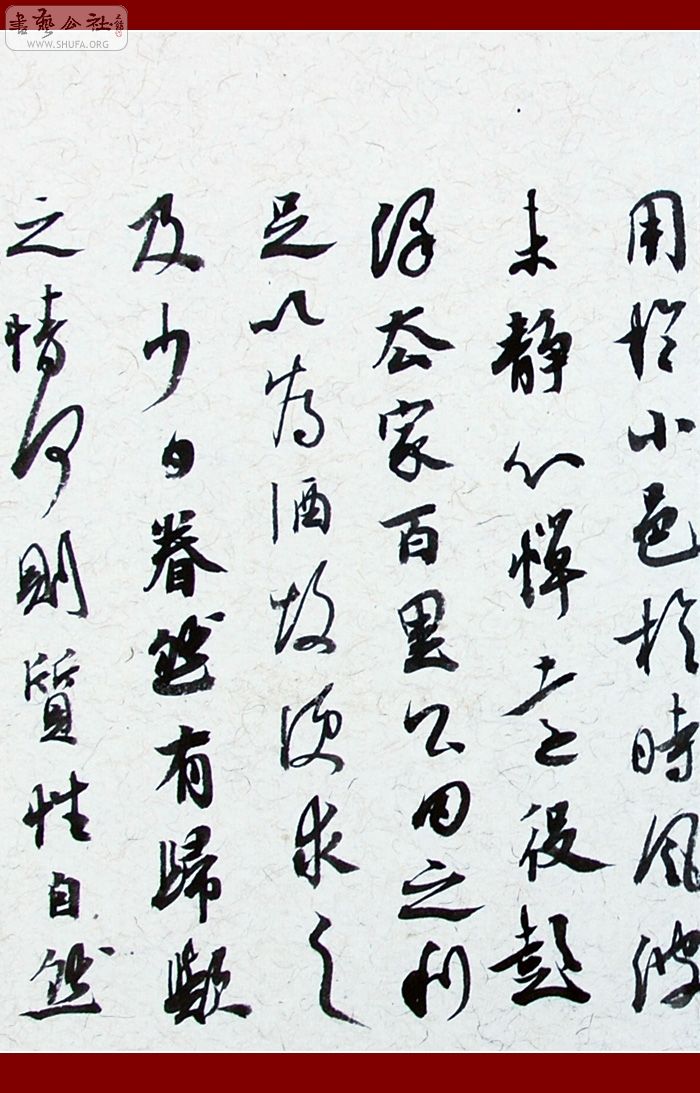 書藝公社
WWW.SHUFA.ORG
用於小邑於時風波
未靜心憚遠役彭
澤去家百里公田之利
足以為酒故便求之
及少日眷然有歸歟
之情何則質性自然